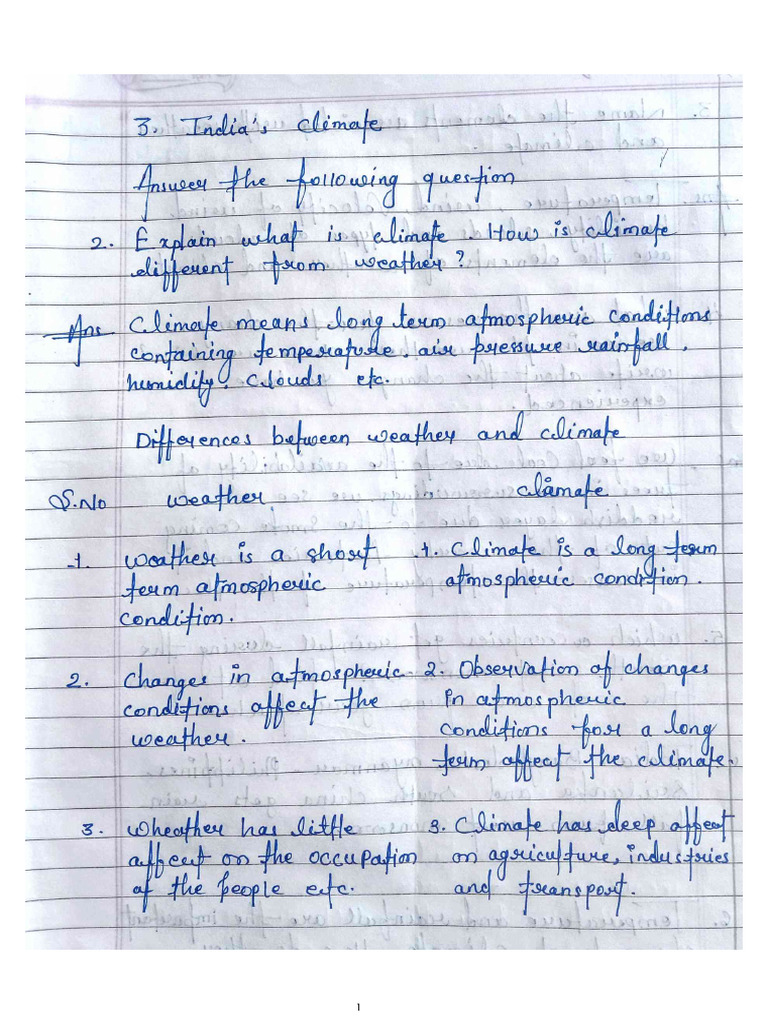 3. India's climate
Answer the following question
2. Explain what is climate. How is climate
different from weather?
Ans Climate means long term atmospheric conditions
containing temperature, air pressure rainfall,
humidity, clouds etc.
Differences between weather and climate
S.No weather climate
1. Weather is a short 1. Climate is a long term
term atmospheric atmospheric condition.
condition.
2. Changes in atmospheric 2. Observation of changes
conditions affect the in atmospheric
weather. conditions for a long
term affect the climate.
3. Wheather has little 3. Climate has deep affect
affect on the occupation on agriculture, industries
of the people etc. and transport.
1